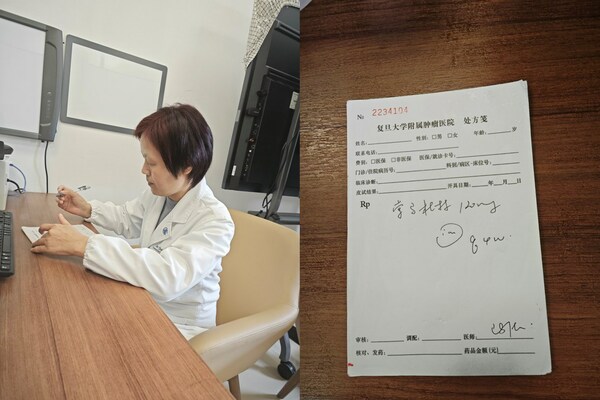 № 2234104
复旦大学附属肿瘤医院 处方笺
姓名: 性别: □男 □女 年龄: 岁
联系电话:
费别: □医保 □非医保 医保/就诊卡号:
门诊/住院病历号: 科别/病区-床位号:
临床诊断: 开具日期: 年 月 日
皮试结果:
Rp
120mg
q4w.
审核: 调配: 医师:
核对、发药: 药品金额(元)